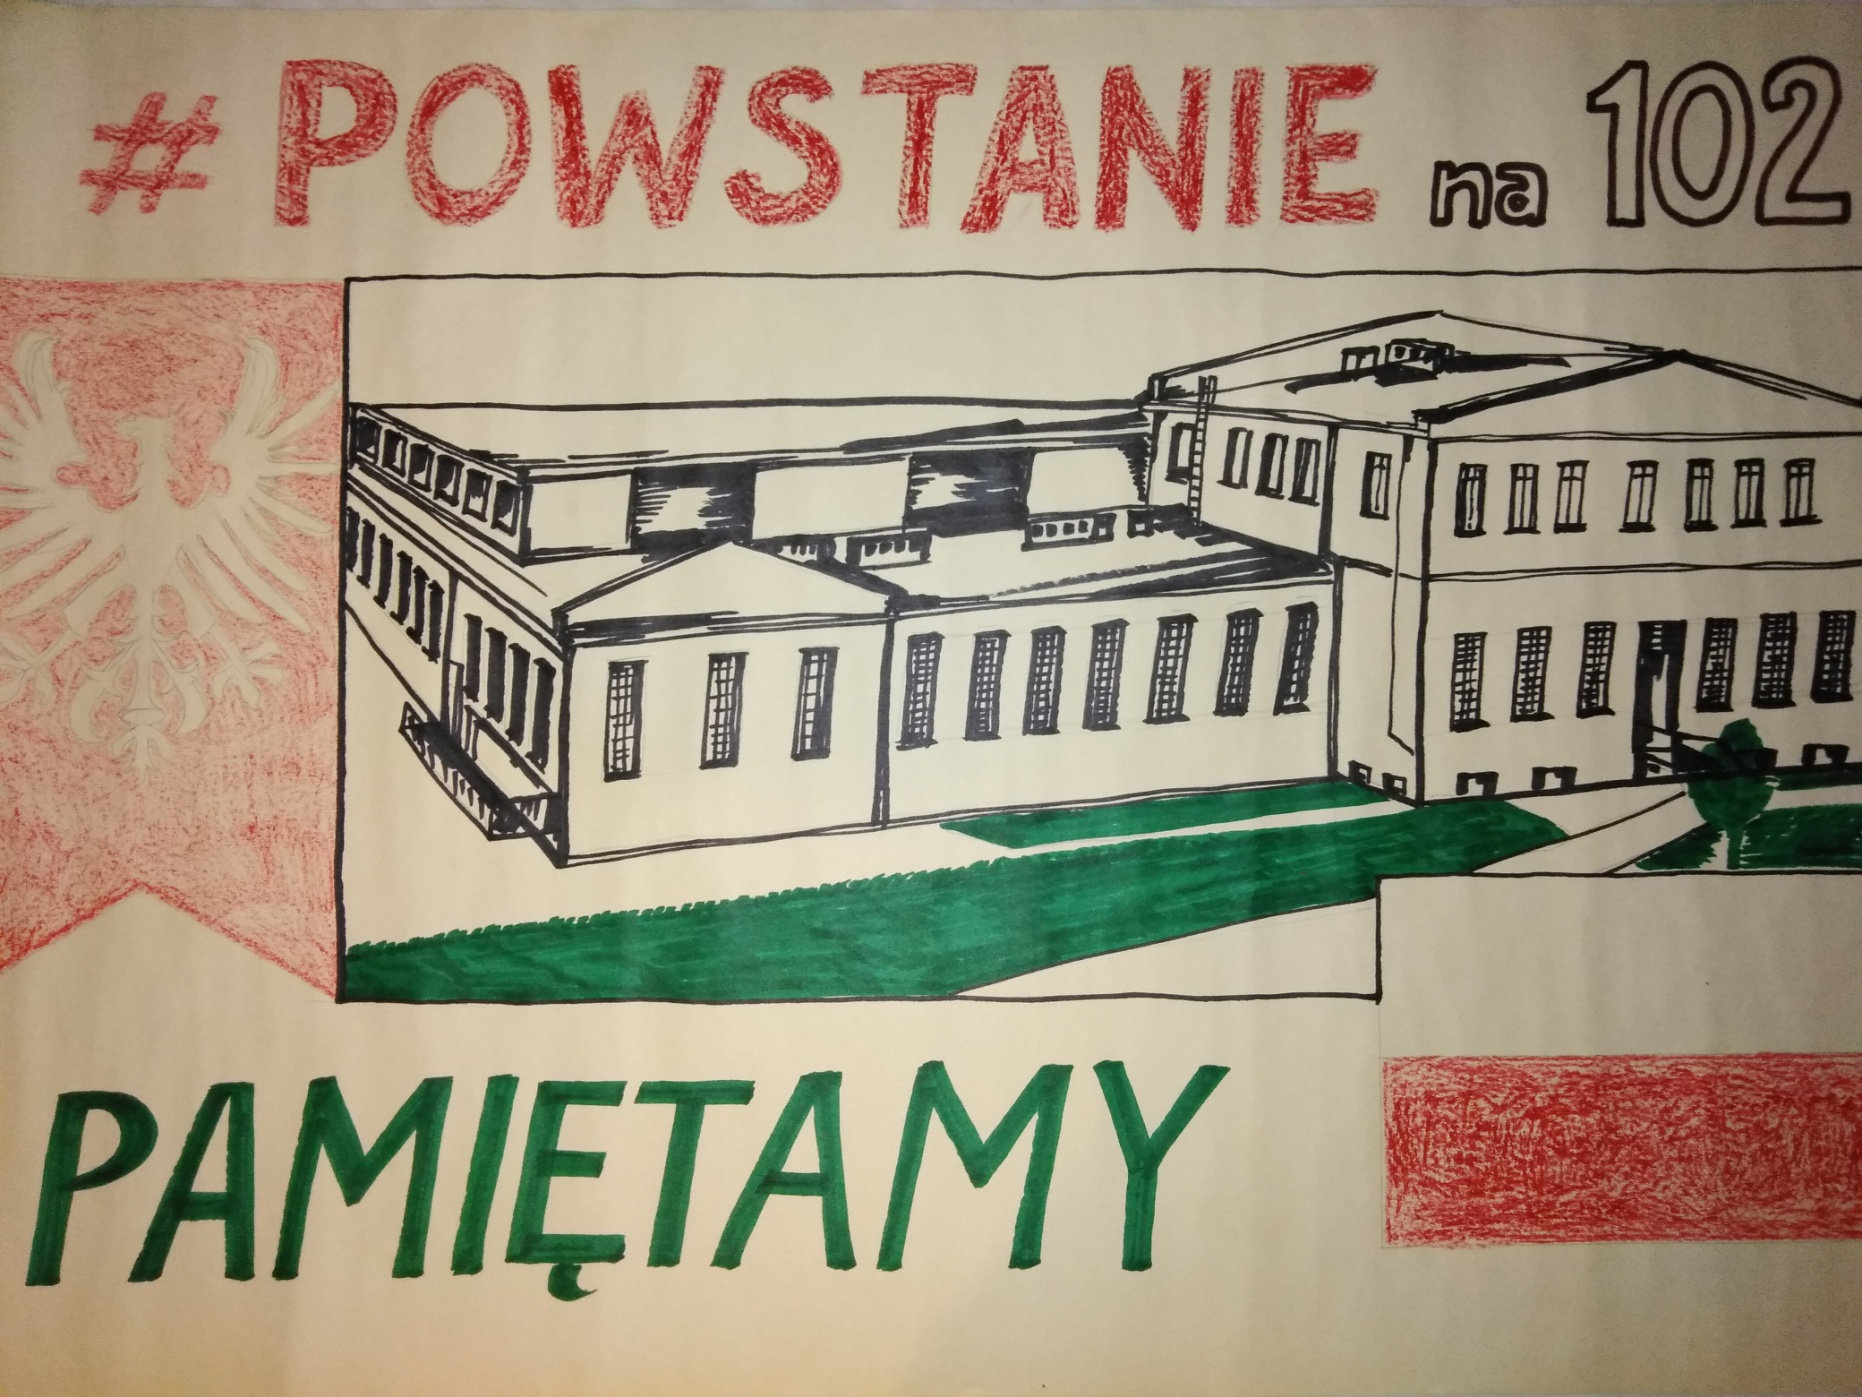 #POWSTANIE na 102
PAMIĘTAMY